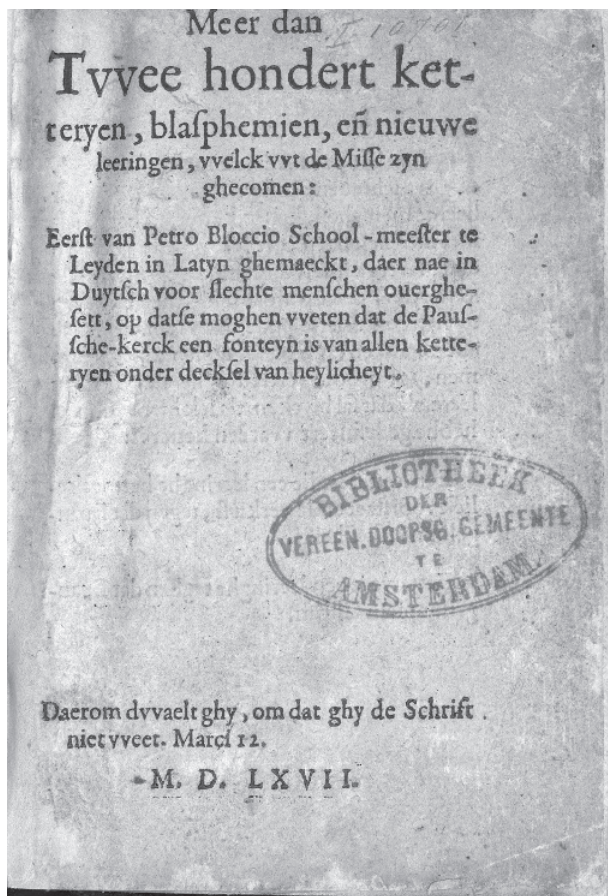 Meer dan
Tvvee hondert ket-
teryen, blaſphemien, en̄ nieuwe
leeringen, vvelck vvt de Miſſe zyn
ghecomen:
Eerſt van Petro Bloccio School-meeſter te
Leyden in Latyn ghemaeckt, daer nae in
Duytſch voor ſlechte menſchen ouerghe-
ſett, op datſe moghen vveten dat de Pauſ-
ſche-kerck een fonteyn is van allen kette-
ryen onder deckſel van heylicheyt.
BIBLIOTHEEK
DER
VEREEN. DOOPSG. GEMEENTE
TE
AMSTERDAM.
Daerom dvvaelt ghy, om dat ghy de Schrift
niet vveet. Marci 12.
M. D. LXVII.